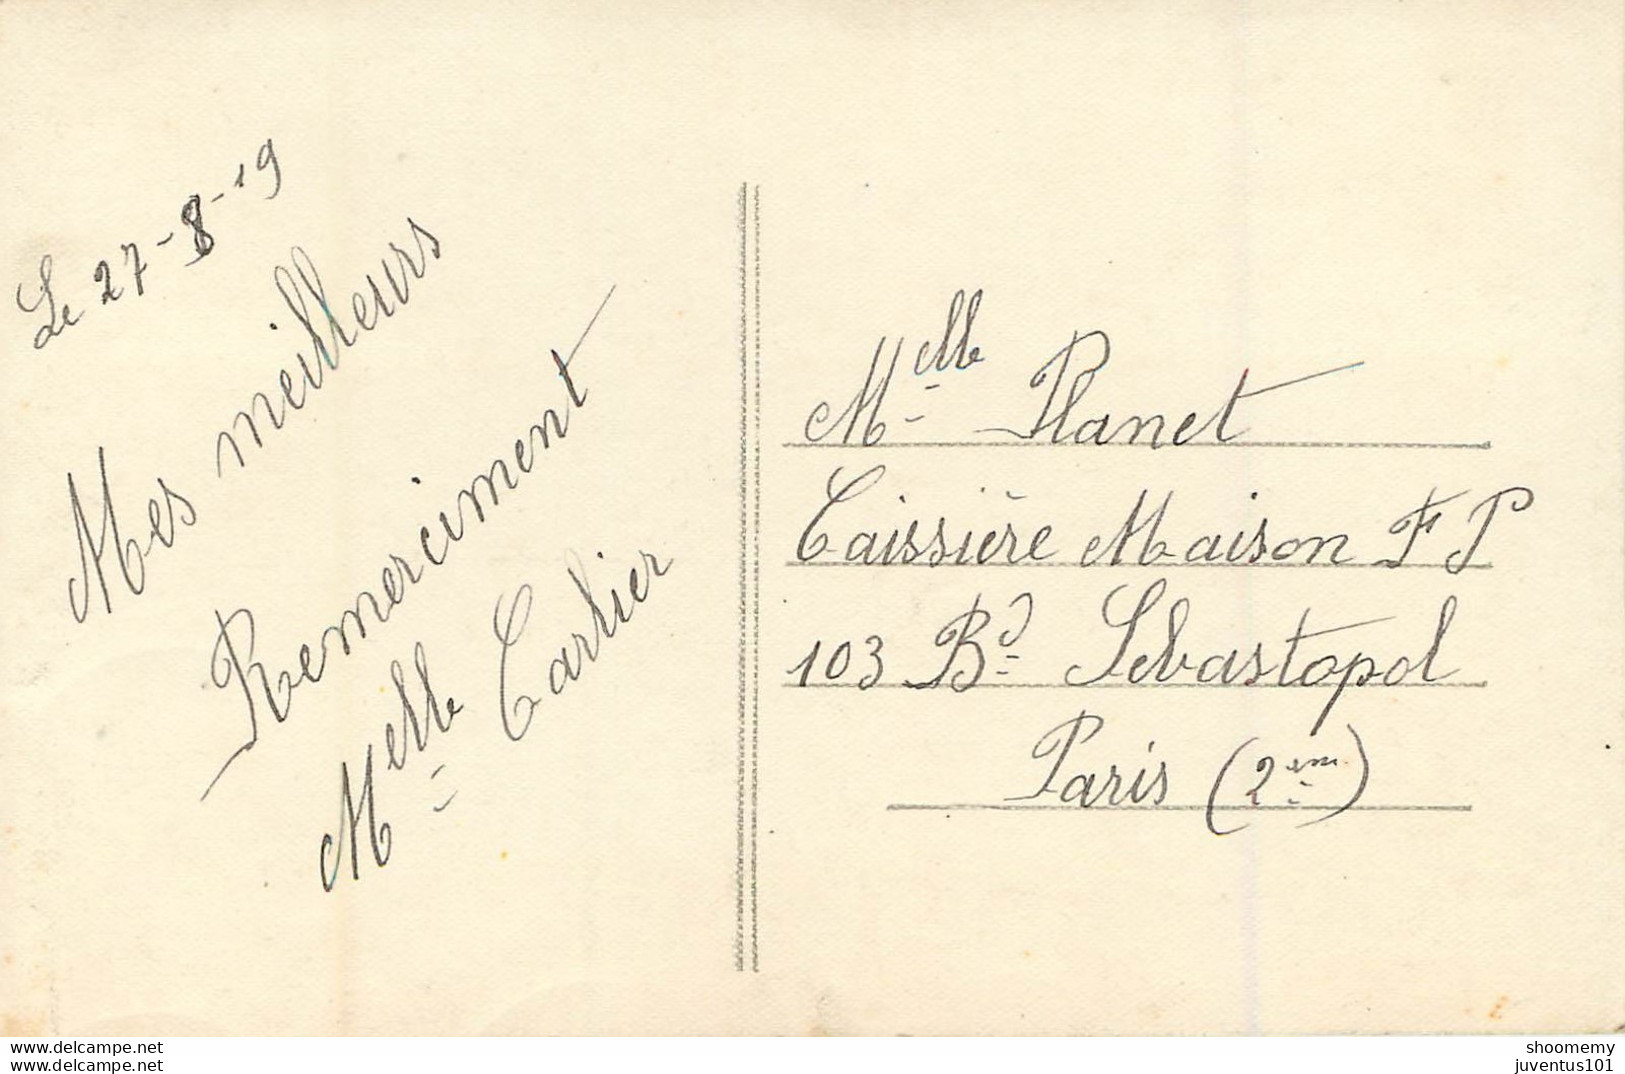 Le 27-8-19
Mes meilleurs
Remerciment
Melle Carlier
Melle Planet
Caissière Maison F P
103 Bd Sebastopol
Paris (2em)
www.delcampe.net
www.delcampe.net
shoomemy
juventus101